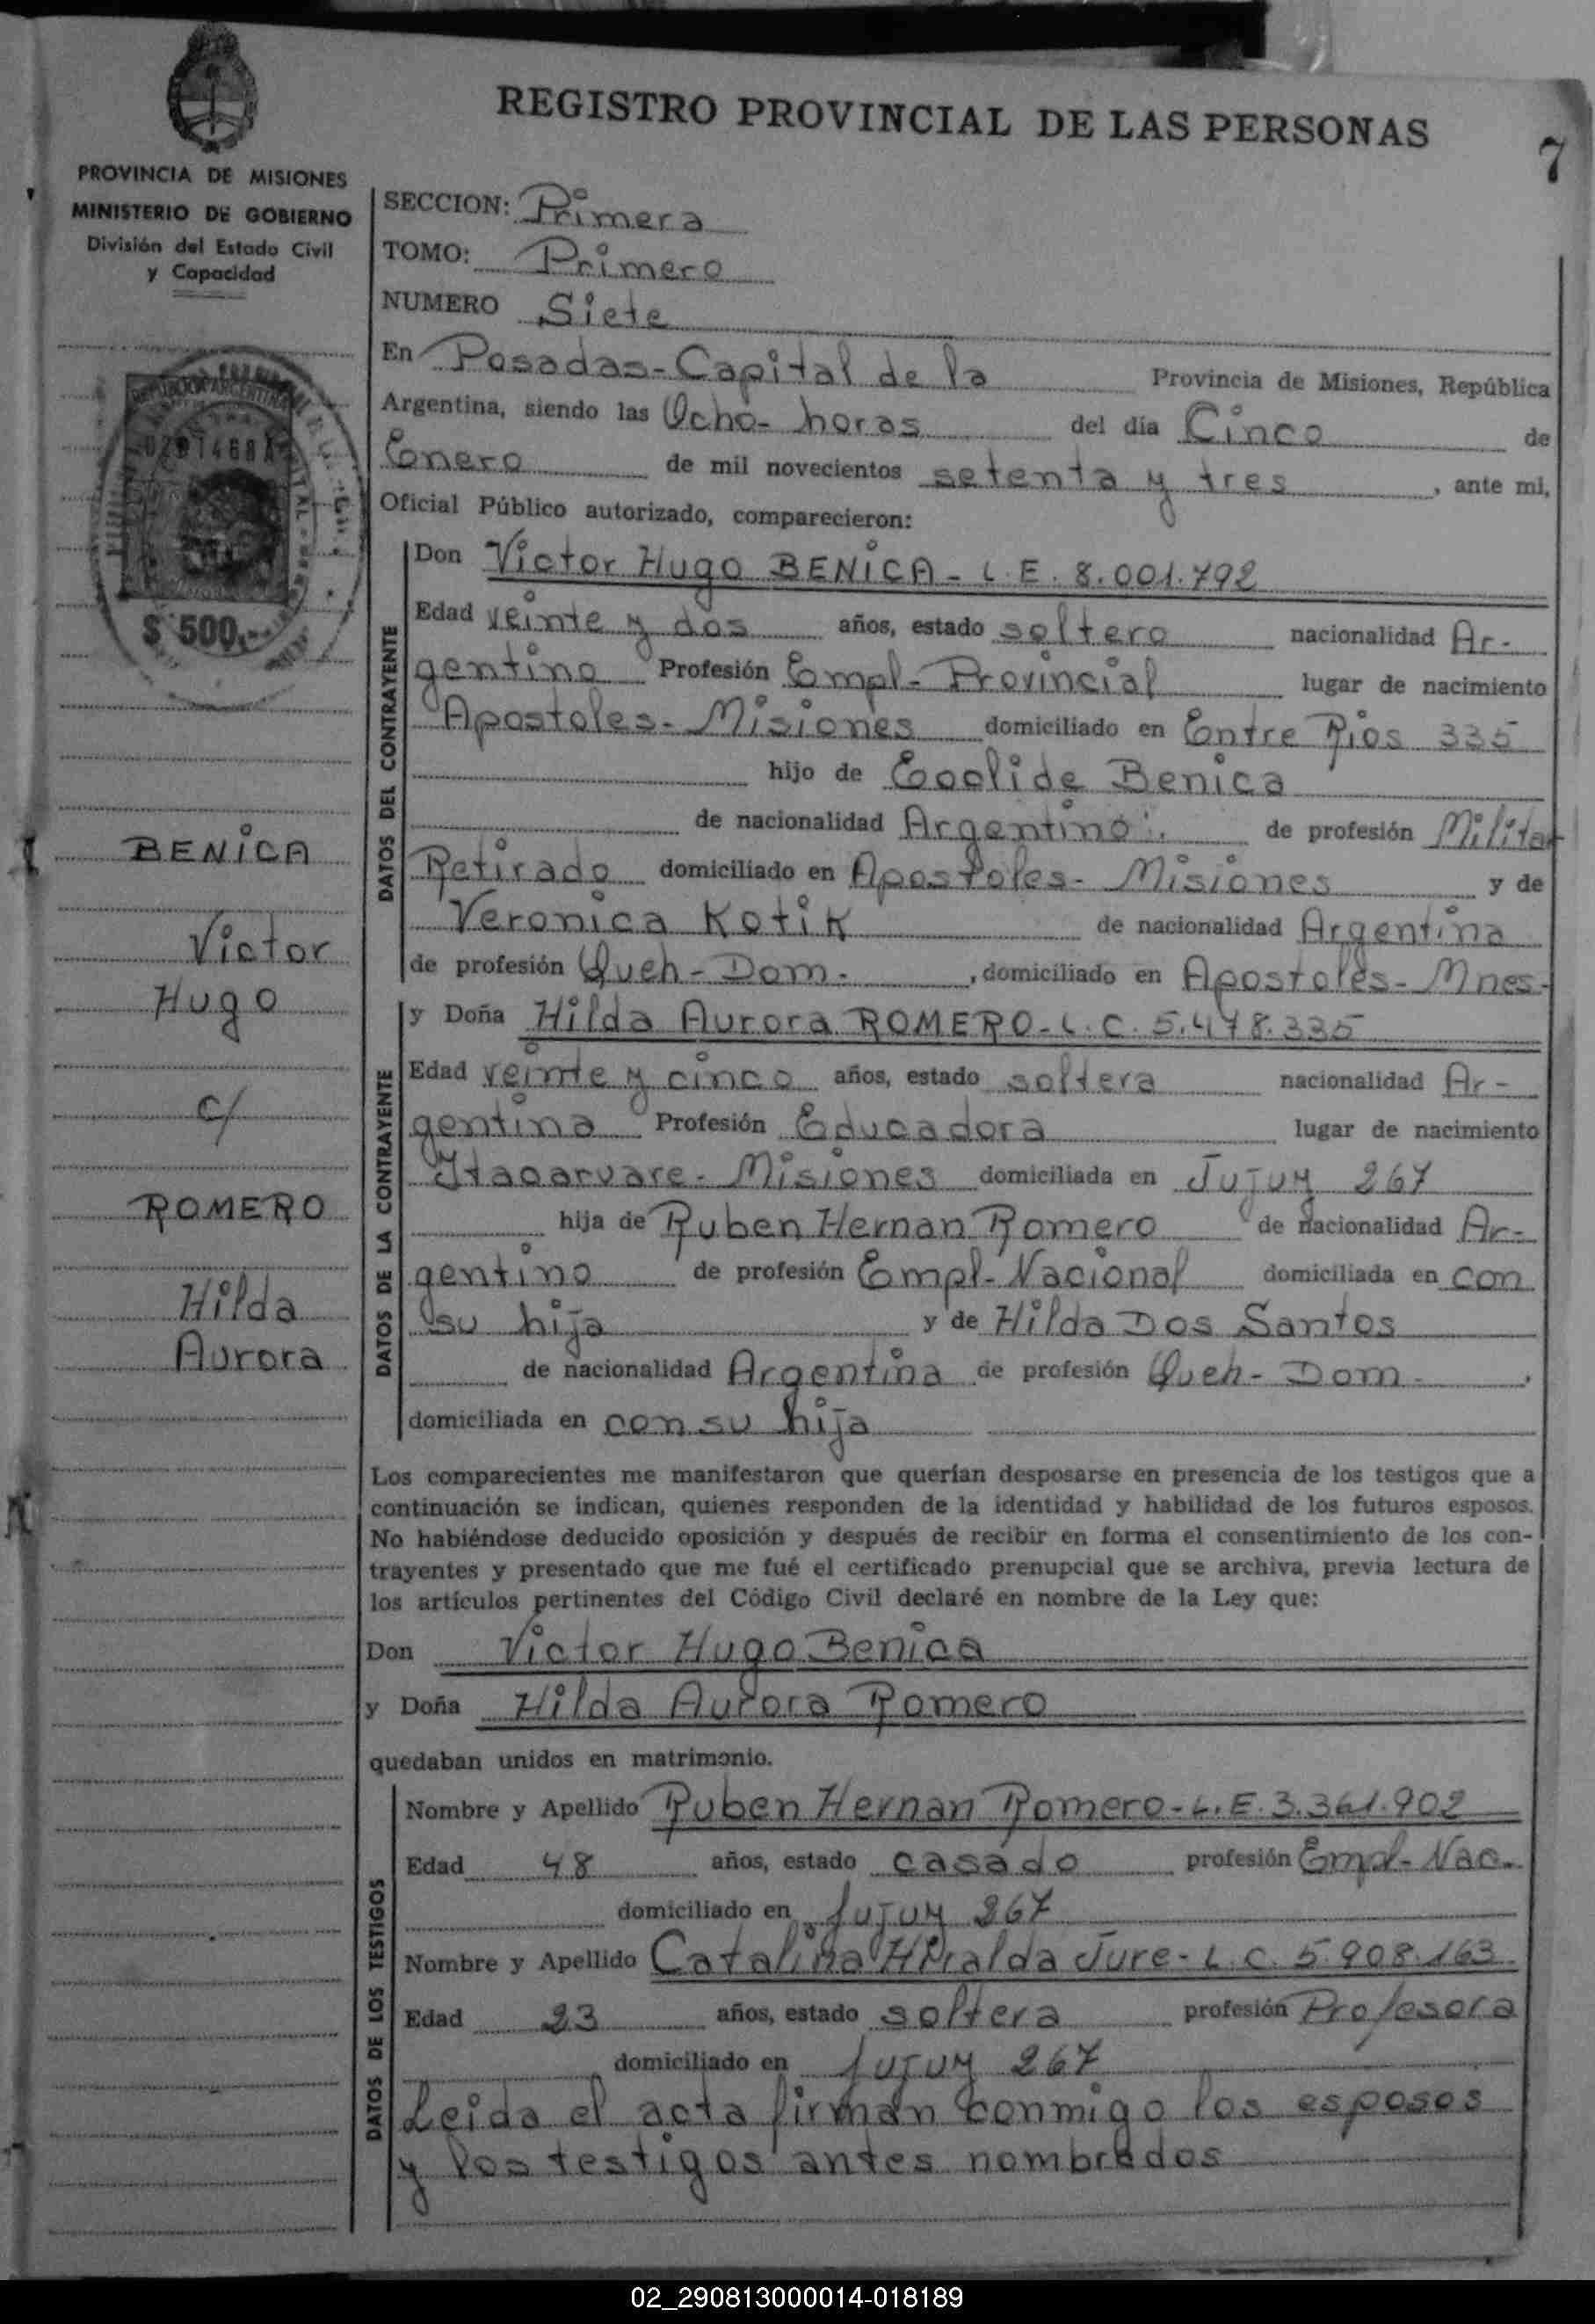 REGISTRO PROVINCIAL DE LAS PERSONAS
7
PROVINCIA DE MISIONES
MINISTERIO DE GOBIERNO
División del Estado Civil
y Capacidad
REPUBLICA ARGENTINA
$ 500.-
BENICA
Victor
Hugo
c/
ROMERO
Hilda
Aurora
SECCION: Primera
TOMO: Primero
NUMERO Siete
En Posadas-Capital de la Provincia de Misiones, República
Argentina, siendo las Ocho- horas del día Cinco de
Enero de mil novecientos setenta y tres, ante mi,
Oficial Público autorizado, comparecieron:
DATOS DEL CONTRAYENTE
Don Victor Hugo BENICA - L.E. 8.001.792
Edad veinte y dos años, estado soltero nacionalidad Ar-
gentino Profesión Empl- Provincial lugar de nacimiento
Apostoles- Misiones domiciliado en Entre Rios 335
hijo de Eoclide Benica
de nacionalidad Argentino de profesión Militar
Retirado domiciliado en Apostoles- Misiones y de
Veronica Kotik de nacionalidad Argentina
de profesión Queh- Dom-, domiciliado en Apostoles- Mnes-
DATOS DE LA CONTRAYENTE
y Doña Hilda Aurora ROMERO- L.C. 5.478.335
Edad veinte y cinco años, estado soltera nacionalidad Ar-
gentina Profesión Educadora lugar de nacimiento
Itacarvare- Misiones domiciliada en Jujuy 267
hija de Ruben Hernan Romero de nacionalidad Ar-
gentino de profesión Empl- Nacional domiciliada en con
su hija y de Hilda Dos Santos
de nacionalidad Argentina de profesión Queh- Dom-,
domiciliada en con su hija
Los comparecientes me manifestaron que querían desposarse en presencia de los testigos que a
continuación se indican, quienes responden de la identidad y habilidad de los futuros esposos.
No habiéndose deducido oposición y después de recibir en forma el consentimiento de los con-
trayentes y presentado que me fué el certificado prenupcial que se archiva, previa lectura de
los artículos pertinentes del Código Civil declaré en nombre de la Ley que:
Don Victor Hugo Benica
y Doña Hilda Aurora Romero
quedaban unidos en matrimonio.
DATOS DE LOS TESTIGOS
Nombre y Apellido Ruben Hernan Romero- L.E. 3.361.902
Edad 48 años, estado casado profesión Empl- Nac.
domiciliado en Jujuy 267
Nombre y Apellido Catalina Jure- L.C. 5.908.163
Edad 23 años, estado soltera profesión Profesora
domiciliado en Jujuy 267
Leida el acta firman conmigo los esposos
y los testigos antes nombrados
02_290813000014-018189